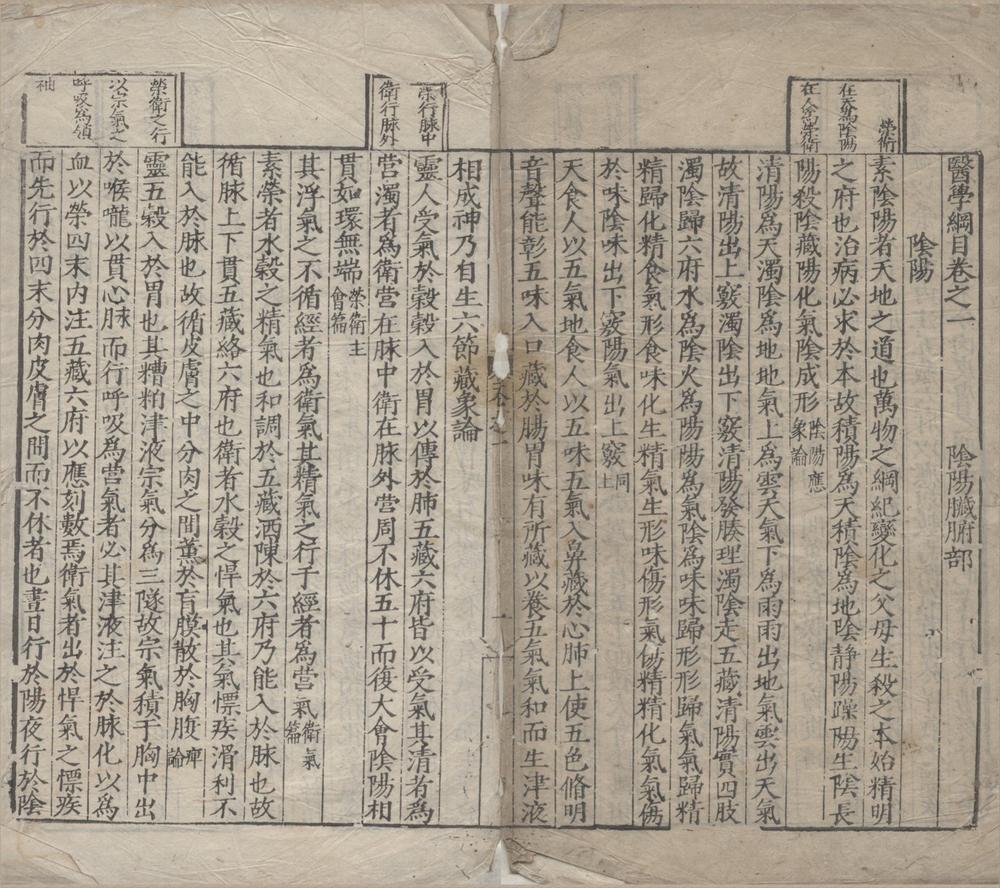 醫學綱目卷之一　陰陽臟腑部
陰陽
榮衛
在天為陰陽
在人為榮衛
素陰陽者天地之道也萬物之綱紀變化之父母生殺之本始精明
之府也治病必求於本故積陽為天積陰為地陰静陽躁陽生陰長
陽殺陰藏陽化氣陰成形陰陽應象論
清陽為天濁陰為地地氣上為雲天氣下為雨雨出地氣雲出天氣
故清陽出上竅濁陰出下竅清陽發腠理濁陰走五藏清陽實四肢
濁陰歸六府水為陰火為陽陽為氣陰為味味歸形形歸氣氣歸精
精歸化精食氣形食味化生精氣生形味傷形氣傷精精化氣氣傷
於味陰味出下竅陽氣出上竅同上
天食人以五氣地食人以五味五氣入鼻藏於心肺上使五色脩明
音聲能彰五味入口藏於腸胃味有所藏以養五氣氣和而生津液
相成神乃自生六節藏象論
榮行脉中
衛行脉外
靈人受氣於穀穀入於胃以傳於肺五藏六府皆以受氣其清者為
營濁者為衛營在脉中衛在脉外營周不休五十而復大會陰陽相
貫如環無端榮衛生會篇
其浮氣之不循經者為衛氣其精氣之行于經者為營氣衛氣篇
素榮者水穀之精氣也和調於五藏洒陳於六府乃能入於脉也故
循脉上下貫五藏絡六府也衛者水穀之悍氣也其氣慓疾滑利不
能入於脉也故循皮膚之中分肉之間薰於肓膜散於胸腹痺論
榮衛之行
以宗氣之
呼吸為領
袖
靈五穀入於胃也其糟粕津液宗氣分為三隧故宗氣積于胸中出
於喉嚨以貫心脉而行呼吸焉營氣者必其津液注之於脉化以為
血以榮四末内注五藏六府以應刻數焉衛氣者出於悍氣之慓疾
而先行於四末分肉皮膚之間而不休者也晝日行於陽夜行於陰